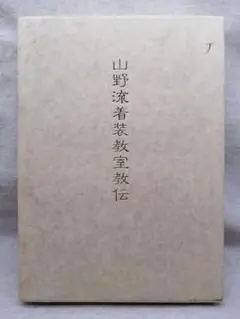 山野流着装教室教伝